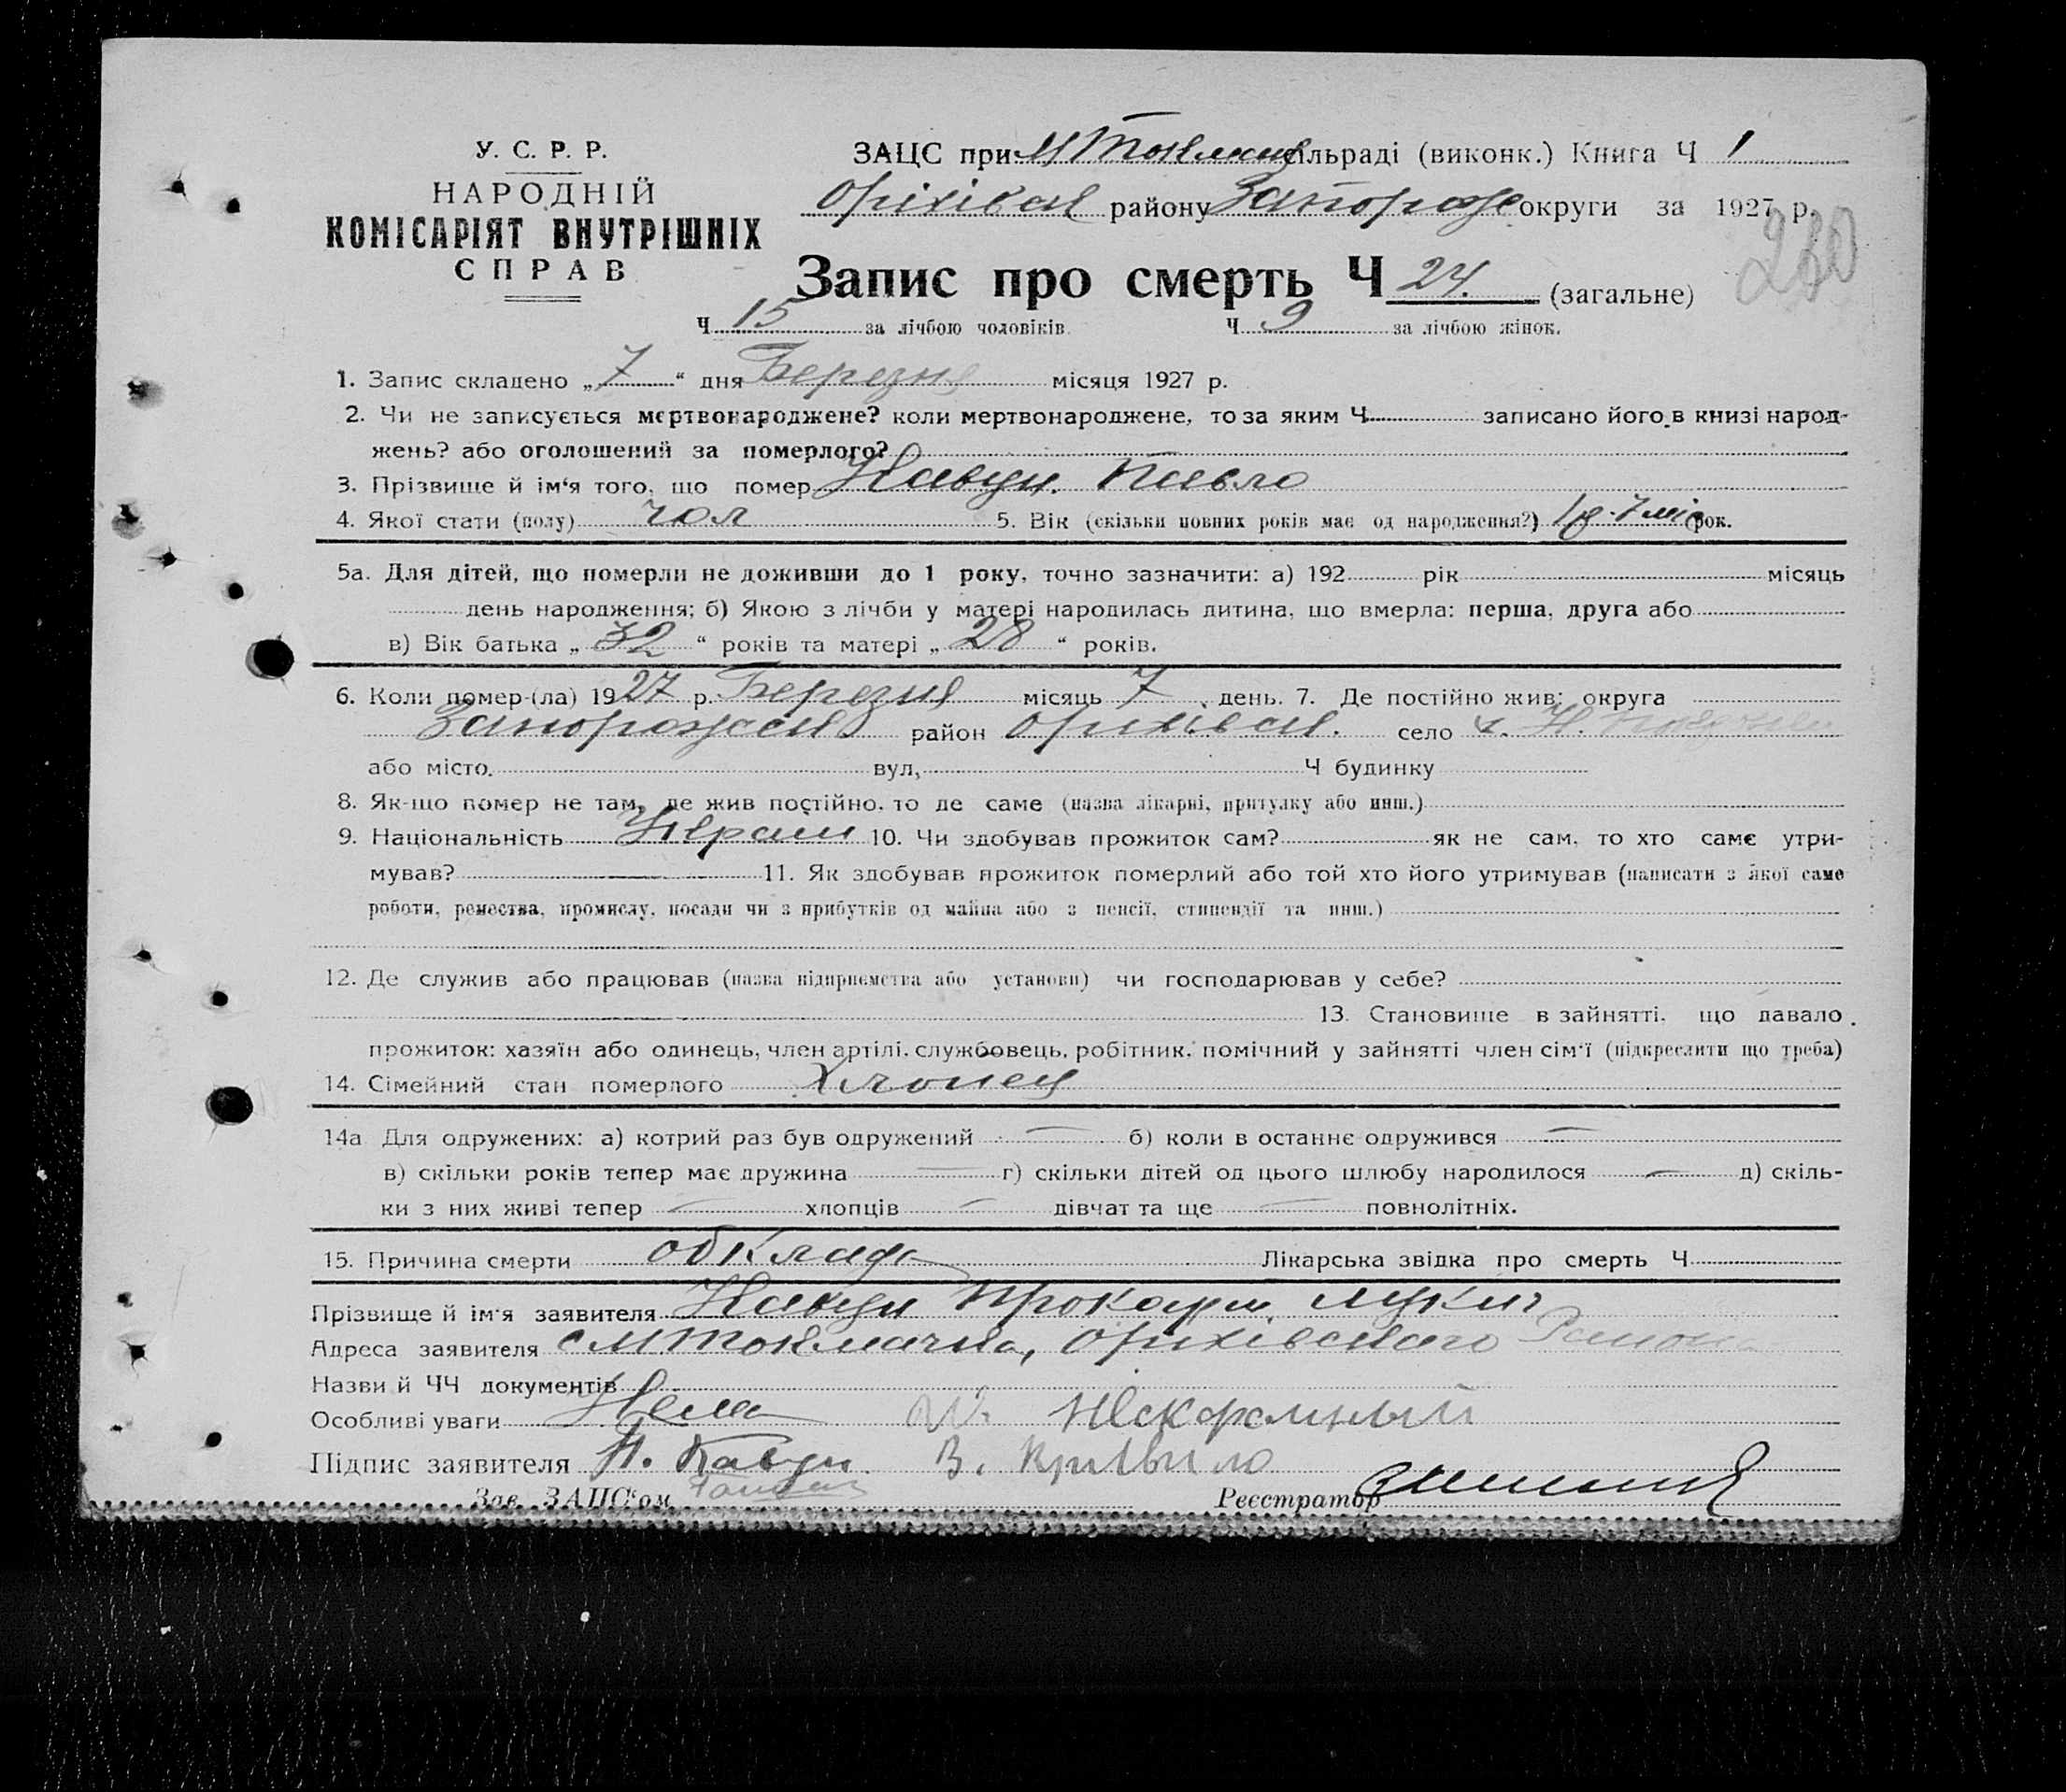 У. С. Р. Р.
НАРОДНІЙ
КОМІСАРІЯТ ВНУТРІШНІХ
СПРАВ
ЗАЦС при М Токмац сільраді (виконк.) Книга Ч 1
Оріхівськ району Запорож округи за 1927 р.
230
Запис про смерть Ч 24. (загальне)
Ч 15 за лічбою чоловіків Ч 9 за лічбою жінок.
1. Запис складено „7“ дня Березня місяця 1927 р.
2. Чи не записується мертвонароджене? коли мертвонароджене, то за яким Ч записано його в книзі народ-
жень? або оголошений за померлого?
3. Прізвище й ім‘я того, що помер Кавун. Павло
4. Якої стати (полу) чол 5. Вік (скільки повних років має од народження?) 1 р. 7 міс рок.
5а. Для дітей, що померли не доживши до 1 року, точно зазначити: а) 192 рік місяць
день народження; б) Якою з лічби у матері народилась дитина, що вмерла: перша, друга або
в) Вік батька „32“ років та матері „28“ років.
6. Коли помер-(ла) 1927 р. Березня місяць 7 день. 7. Де постійно жив: округа
Запорожськ район Оріхівськ. село
або місто. вул, Ч будинку
8. Як-що помер не там, де жив постійно, то де саме (назва лікарні, притулку або инш.)
9. Національність Україн 10. Чи здобував прожиток сам? як не сам, то хто саме утри-
мував? 11. Як здобував прожиток померлий або той хто його утримував (написати з якої саме
роботи, ремества, промислу, посади чи з прибутків од майна або з пенсії, стипендії та инш.)
12. Де служив або працював (назва підприємства або установи) чи господарював у себе?
13. Становище в зайнятті, що давало
прожиток: хазяїн або одинець, член артілі, службовець, робітник, помічний у зайнятті член сім‘ї (підкреслити що треба)
14. Сімейний стан померлого Хлопец
14а Для одружених: а) котрий раз був одружений — б) коли в останнє одружився —
в) скільки років тепер має дружина — г) скільки дітей од цього шлюбу народилося — д) скіль-
ки з них живі тепер — хлопців — дівчат та ще — повнолітніх.
15. Причина смерти обклада Лікарська звідка про смерть Ч
Прізвище й ім‘я заявителя Кавун Прокофи Лукич
Адреса заявителя с М Токмачка, Оріхівського Района
Назви й ЧЧ документів
Особливі уваги Нема
Підпис заявителя П. Кавун В.
Зав. ЗАЦС‘ом Реєстратор